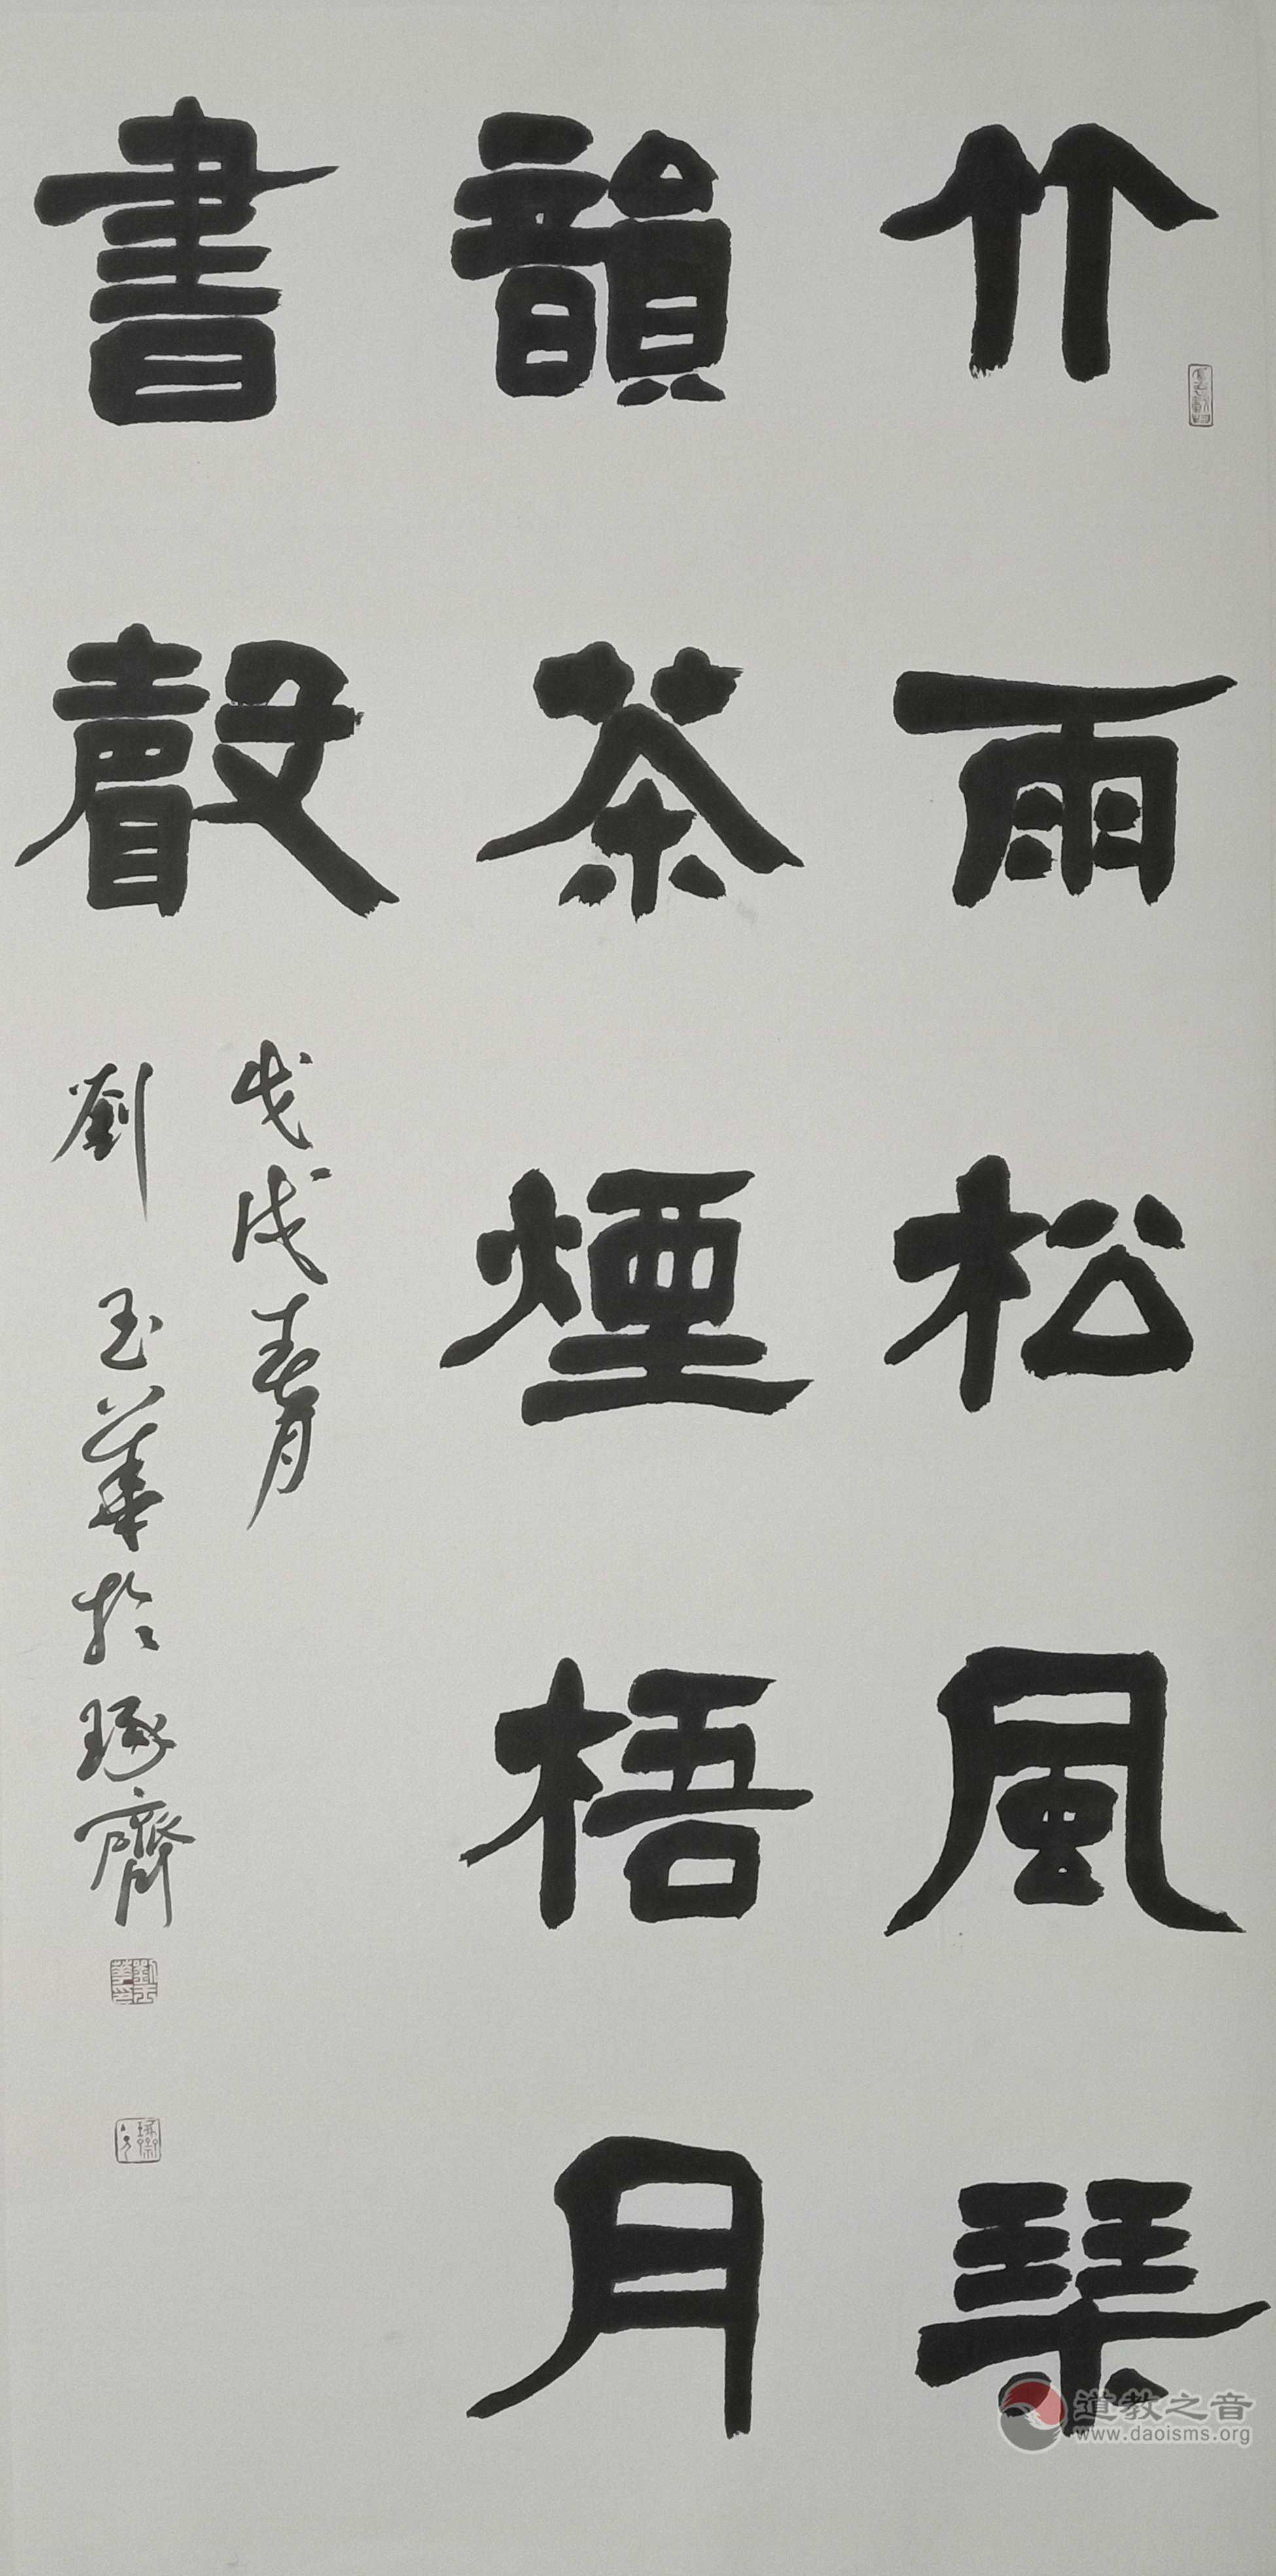 竹雨松風琴
韻茶煙梧月
書聲
戊戌春月
劉玉華於琢齋
劉玉華印
道教之音
www.daoisms.org